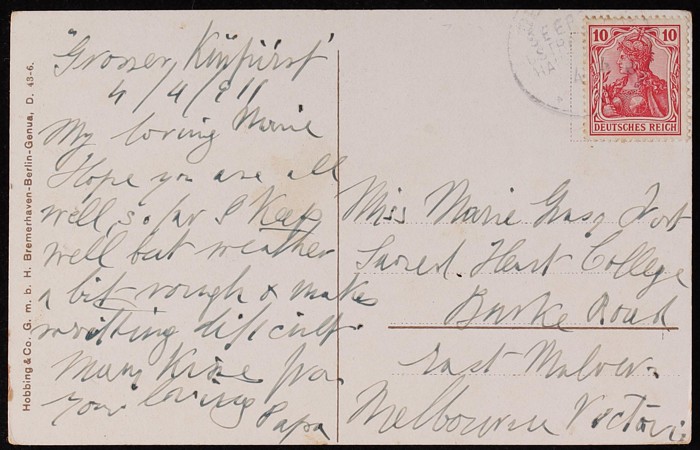 "Grosser Kurfürst"
4/4/911
My loving Marie
Hope you are all
well, so far I Keep
well but weather
a bit rough & makes
writting difficult.
Many Kise from
your loving Papa
Miss Marie
Sacred Heart College
Burke Road
East Malvern
Melbourne Victoria
10 10
DEUTSCHES REICH
Hobbing & Co. G. m. b. H. Bremerhaven-Berlin-Genua, D. 43-6.